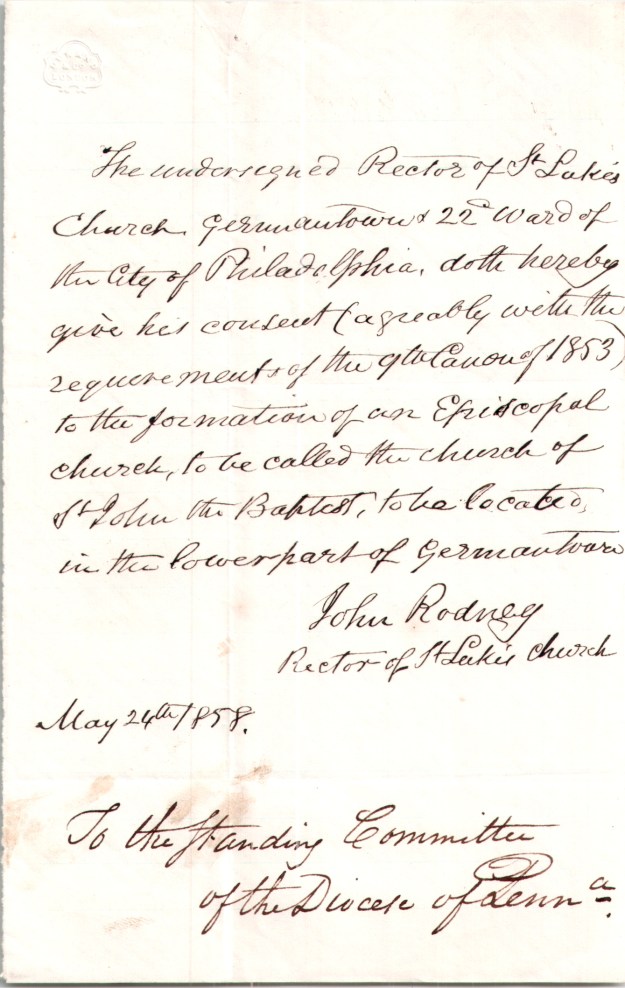 LONDON
The undersigned Rector of St Luke's
Church Germantown & 22d Ward of
the City of Philadelphia, doth hereby
give his consent (agreably with the
requirements of the 9th Canon of 1853)
to the formation of an Episcopal
church, to be called the church of
St John the Baptist, to be located,
in the lower part of Germantown
John Rodney
Rector of St Luke's church
May 24th 1858.
To the Standing Committee
of the Diocese of Penna.